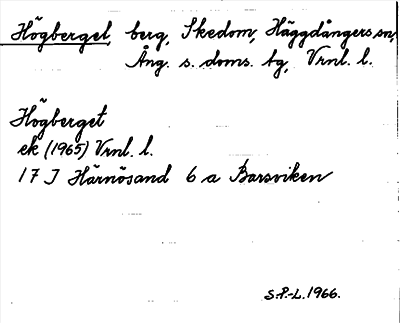 Högberget, berg, Skedom, Häggdångers sn,
Ång. s. doms. tg, Vrnl. l.
Högberget
ek (1965) Vrnl. l.
17 J Härnösand 6 a Barsviken
S.P.-L. 1966.